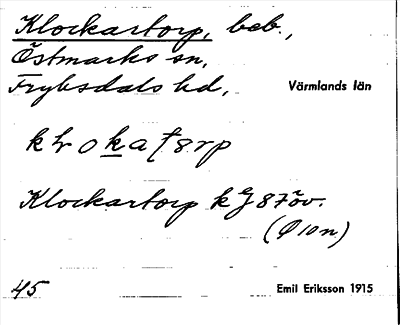 Klockartorp, beb.,
Östmarks sn,
Fryksdals hd,
Värmlands län
Klockartorp k eg 87 öv.
(Ø 10 n)
45
Emil Eriksson 1915